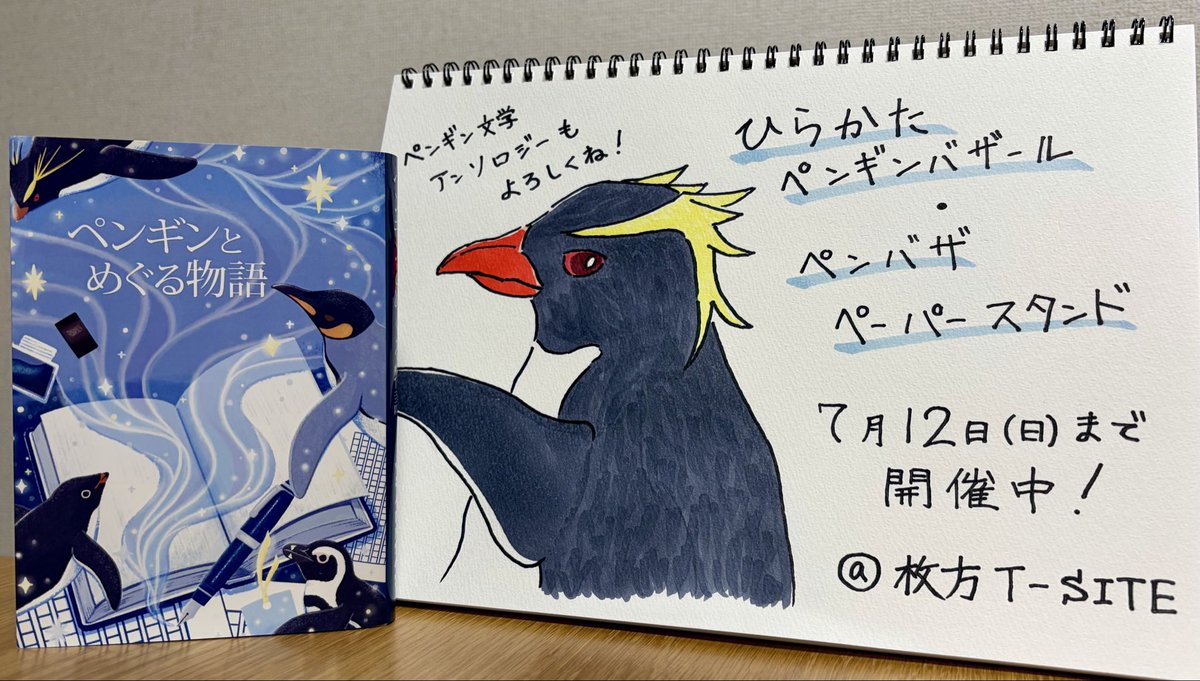 ペンギンと
めぐる物語
ペンギン文学
アンソロジーも
よろしくね!
ひらかた
ペンギンバザール
・
ペンバザ
ペーパースタンド
7月12日(日)まで
開催中!
@枚方T-SITE